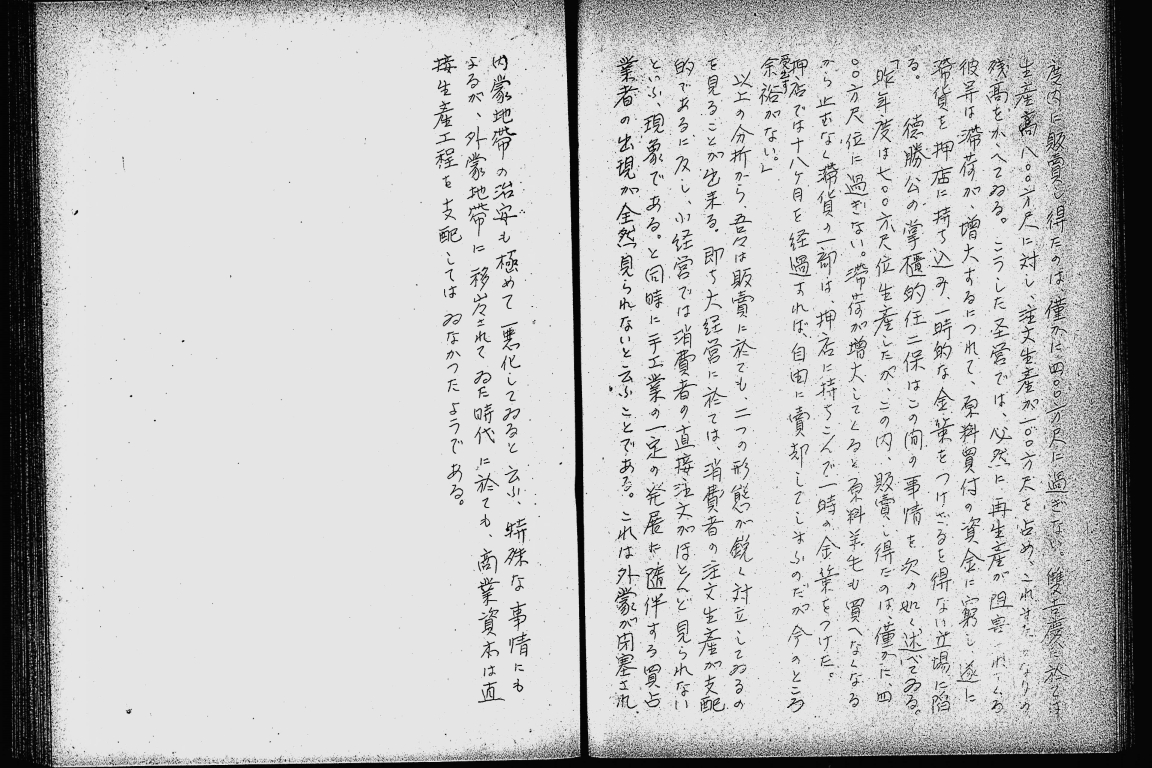 度内に販賣し得たのは、僅かに四〇〇方尺に過ぎない。雙金慶に於ては
生産高八〇〇方尺に対し、注文生産が一〇〇方尺を占め、これまたかなりの
残高をかゝへてゐる。こうした圣営では、必然に再生産が阻害されてくる
彼等は滞荷が増大するにつれて、原料買付の資金に窮し、遂に
滞貨を押店に持ち込み、一時的な金策をつけざるを得ない立場に陥
る。 德勝公の掌櫃的任二保はこの間の事情を次の如く述べてゐる。
「昨年度は七〇〇方尺位生産したが、この内、販賣し得たのは僅かに、四
〇〇方尺位に過ぎない。滞荷が増大してくると原料羊毛も買へなくなる
から止むなく滞貨の一部は、押店に持ちこんで一時の金策をつけた。
押店では十八ヶ月を経過すれば、自由に賣却してしまふのだが今のところ
余裕がない。」
以上の分折から、吾々は販賣に於ても、二つの形態が鋭く対立してゐるの
を見ることが出来る。即ち大経営に於ては、消費者の注文生産が支配
的であるに反し、小経営では消費者の直接注文がほとんど見られない
といふ、現象である。と同時に手工業の一定の発展に隨伴する買占
業者の出現が全然見られないと云ふことである。これは外蒙が閉塞され
内蒙地帶の治安も極めて悪化してゐると云ふ、特殊な事情にも
よるが、外蒙地帶に移出されてゐた時代に於ても、商業資本は直
接生産工程を支配してはゐなかつたようである。